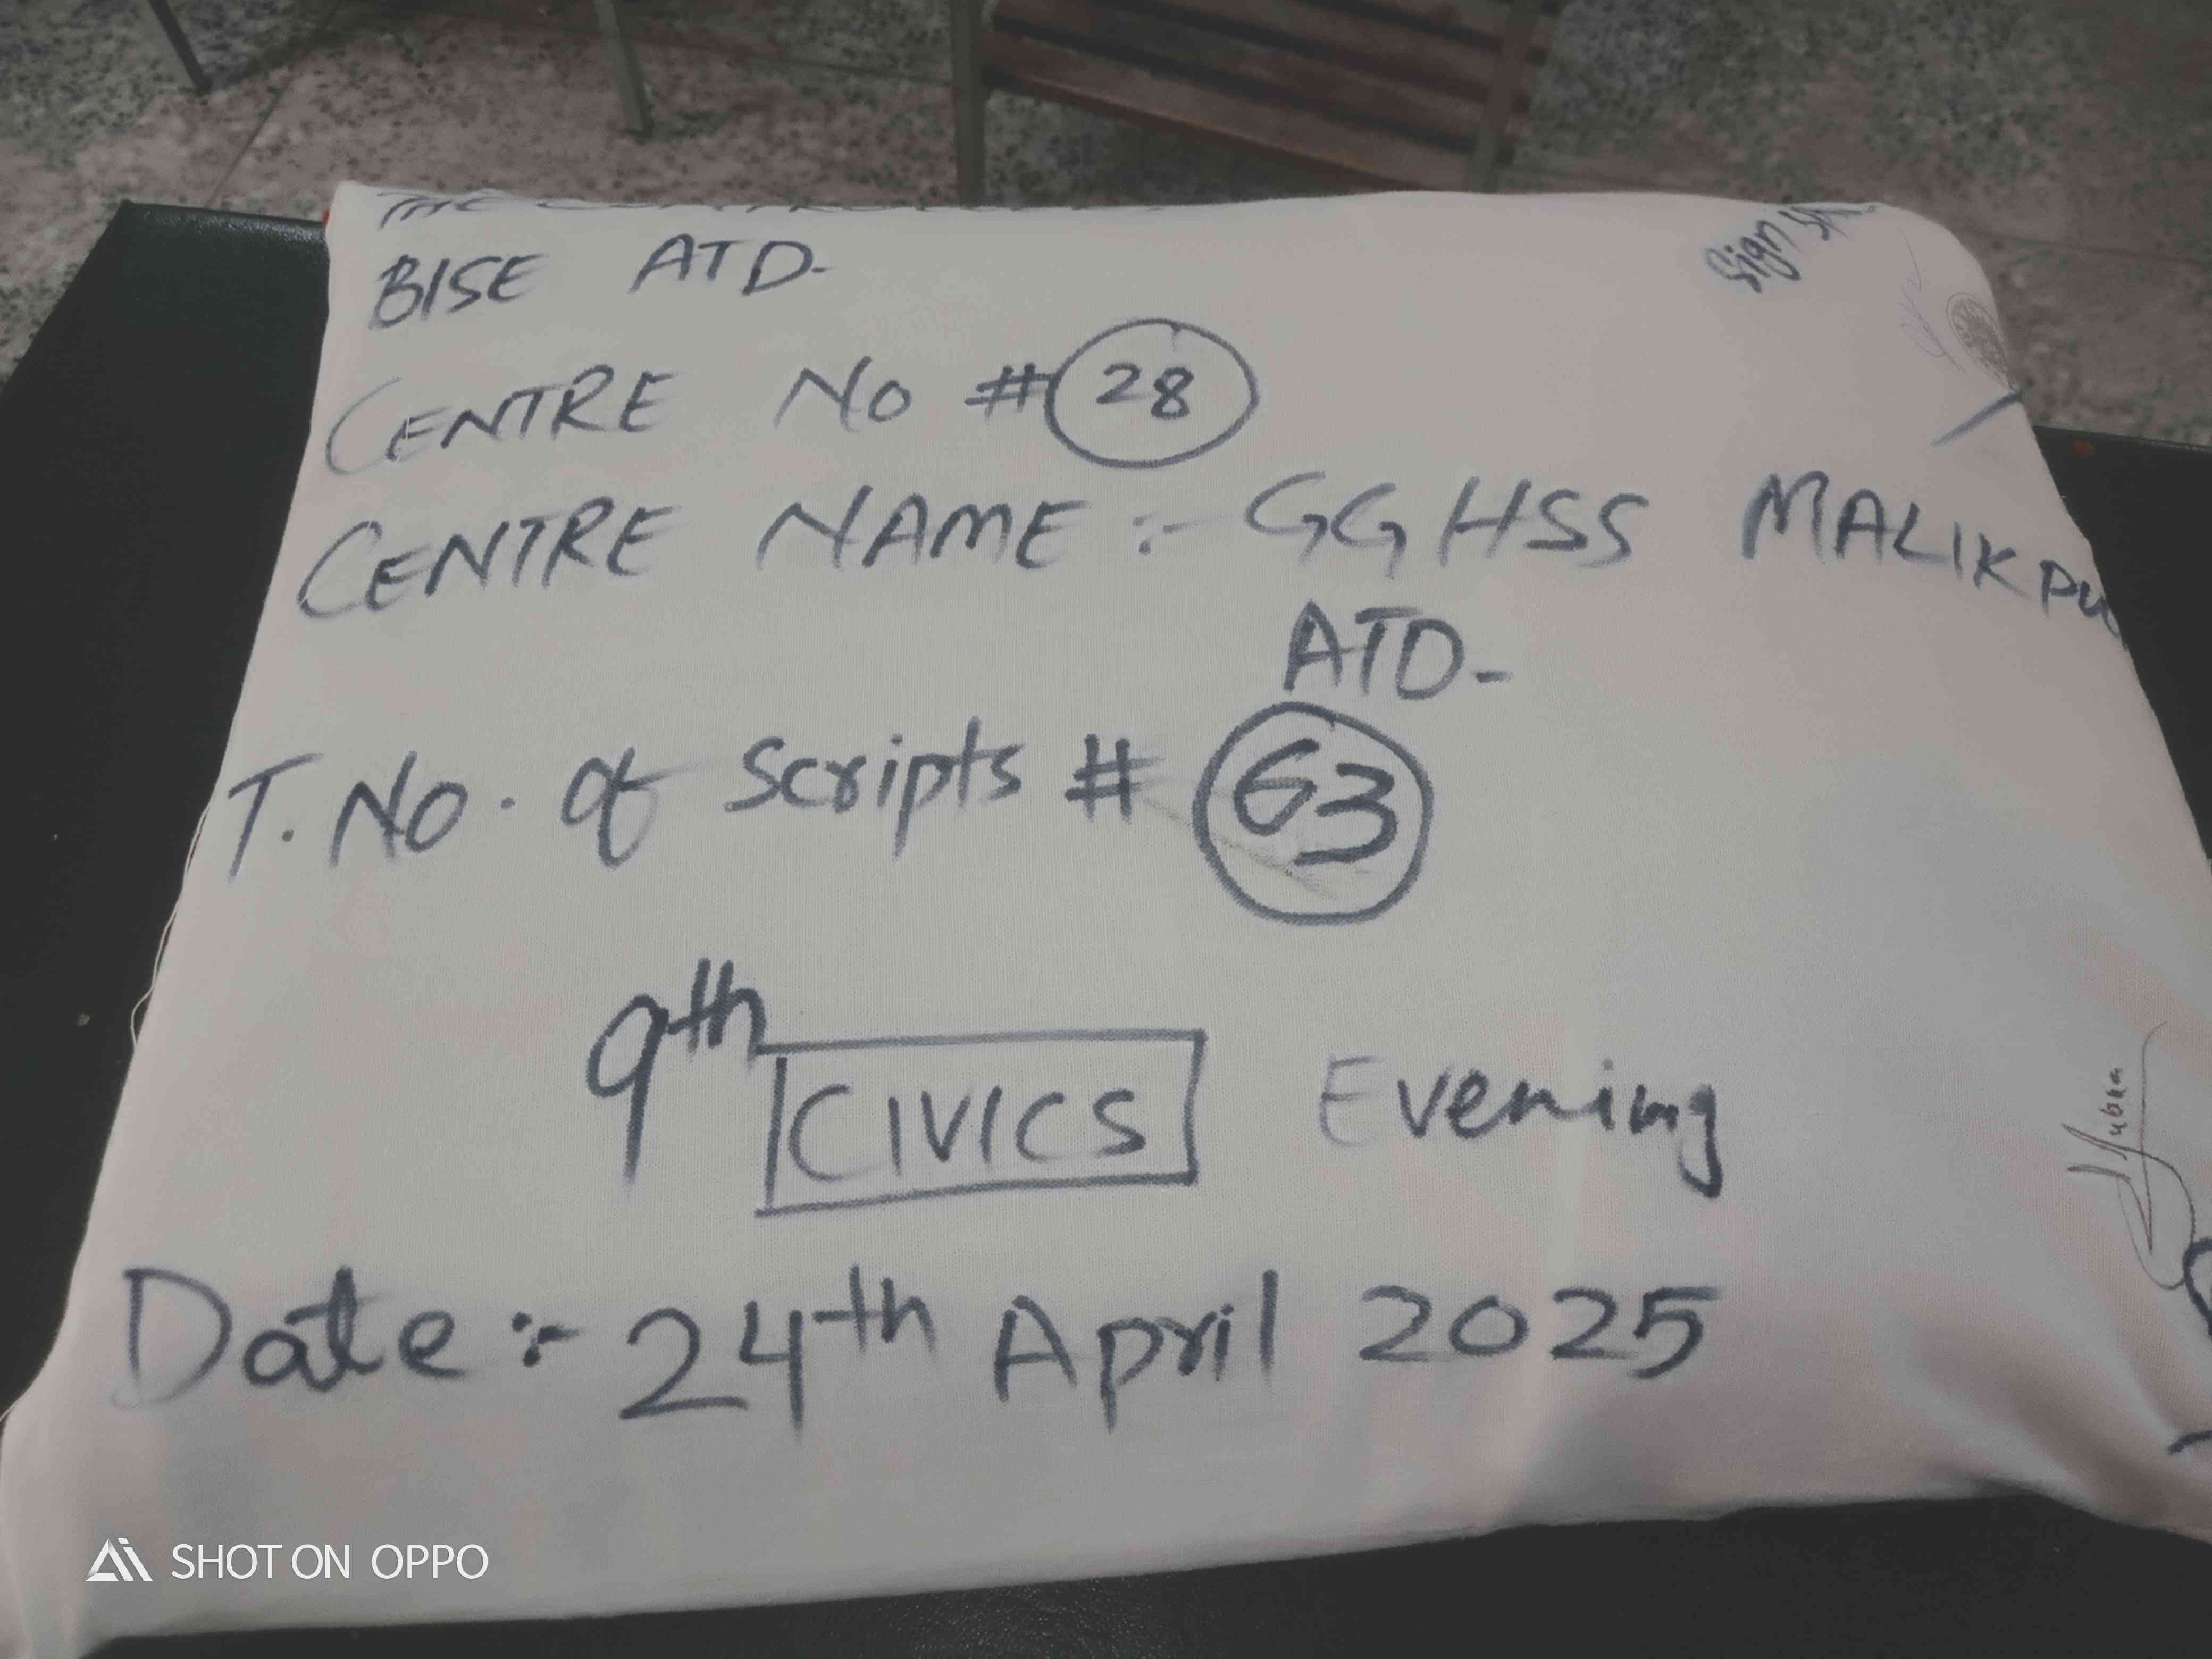 THE CONTROLLER
BISE ATD-
Sign
CENTRE No # 28
CENTRE NAME :- GGHSS MALIKPU
ATD-
T. No. of Scripts # 63
9th CIVICS Evening
Date :- 24th April 2025
SHOT ON OPPO